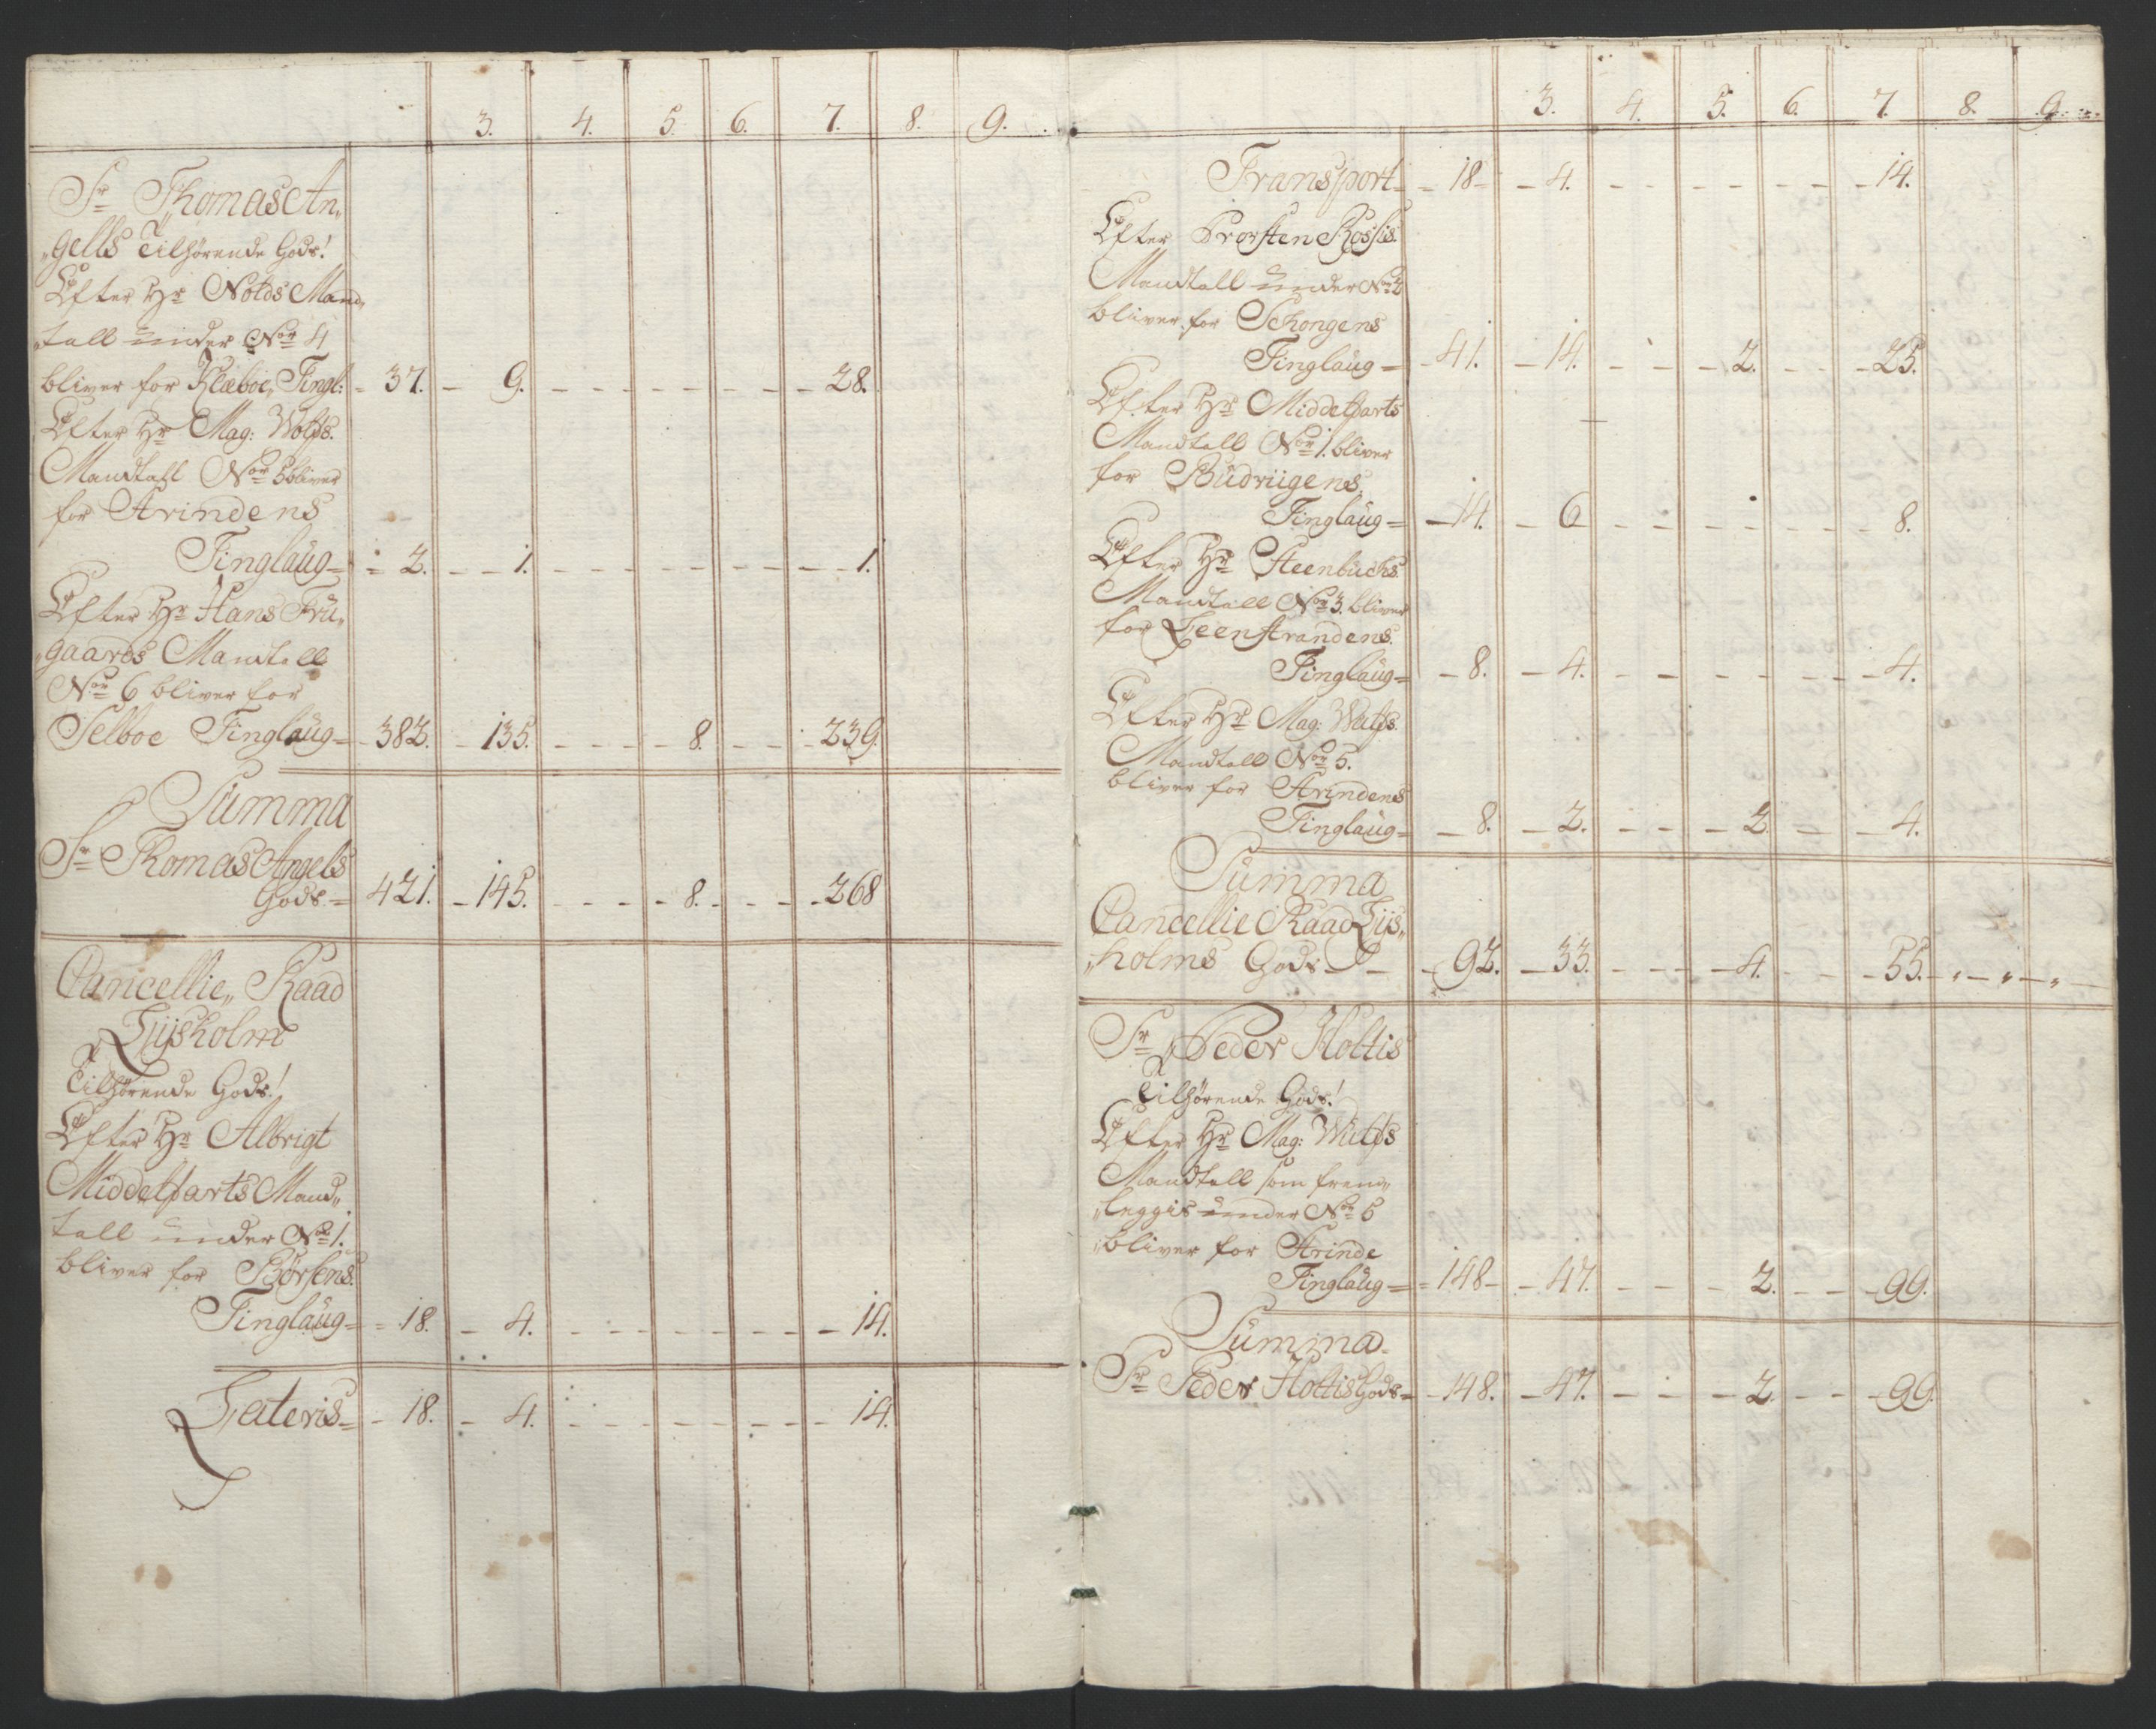 3. 4. 5. 6. 7. 8. 9.
Sr Thomas An„
„gells Tilhørende Gods!
Efter Hr Notds Mand„
„tall under Nor 4
bliver for Klæboe„ Tingl: - 37. - 9. - - - - - - - 28.
Efter Hr Mag: Wolfs.
Mandtall Nor 5 bliver
for Strindens
Tinglaug = 2. - - 1. - - - - - - - - 1.
Efter Hr Hans Fru„
„gaards Mandtall
Nor 6 bliver for
Selboe Tinglaug - 382. - 135. - - - - 8. - - - 239.
Summa
Sr Thomas Angels
Gods = 421. - 145. - - - - 8. - - - 268
Cancellie„ Raad
Lijsholm
Tilhørende Gods!
Efter Hr Albrigt
Middelfarts Mand„
tall under No 1.
bliver for Børsens.
Tinglaug = 18. - 4. - - - - - - - 14.
Lateris - 18. - 4. - - - - - - - 14.
3. 4. 5. 6. 7. 8. 9.
Transport - 18 - - 4. - - - - - - - 14.
Efter Prorsten Rossis
Mandtall under No 2
bliver for Schongens
Tinglaug = - 41. - 14. - - - 2. - - - 25.
Efter Hr Middelfarts
Mandtall Nor 1. bliver
for Büdviigens
Tinglaug = - 14. - 6 - - - - - - - 8.
Efter Hr Steenbuchs
Mandtall Nor 3. bliver
for Leenstrandens.
Tinglaug = - 8. - 4. - - - - - - - 4.
Efter Hr Mag: Wulfs.
Mandtall Nor 5.
bliver for Strindens
Tinglaug = - 8. - 2. - - - 2. - - 4.
Summa
Cancellie Raad Lijs„
„holms Gods - - 92. - 33. - - - 4. - - - 55. - „ - „ - „ -
Sr Peder Holtis
Tilhørende Gods!
Efter Hr Mag: Wulfs
Mandtall som frem„
„leggis under Nor 5
bliver for Strinde
Tinglaug = - 148 - - 47. - - - 2. - - - 99.
Summa
Sr Peder Holtis Gods = - 148. - 47. - - - 2. - - - 99.